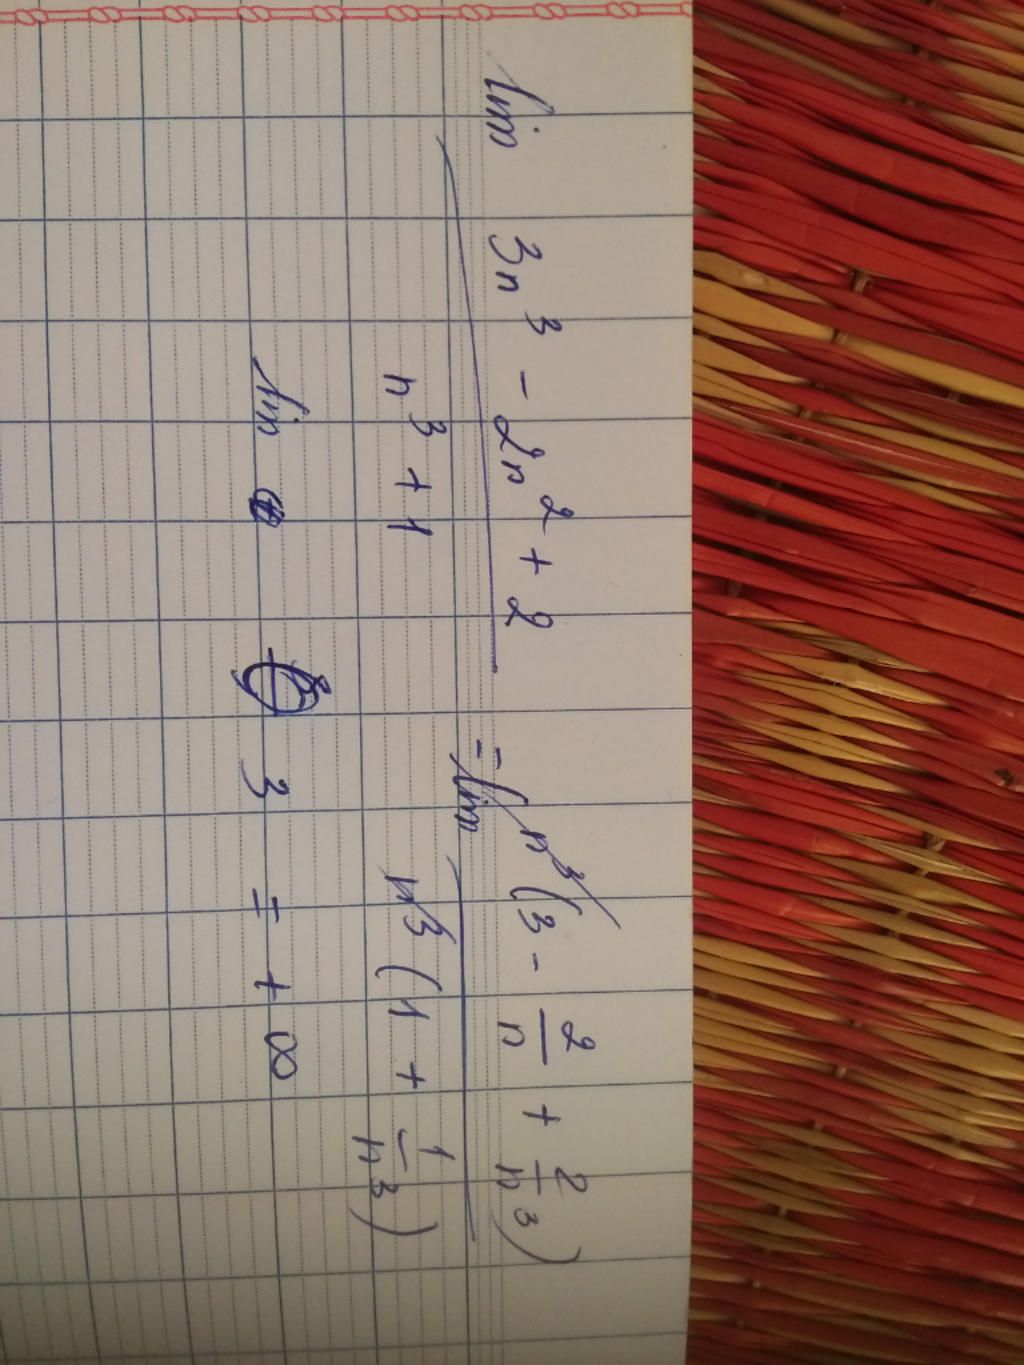 lim (3n³ - 2n² + 2)/(n³ + 1) = lim n³(3 - 2/n + 2/n³)/(n³(1 + 1/n³))
lim 3 = +∞